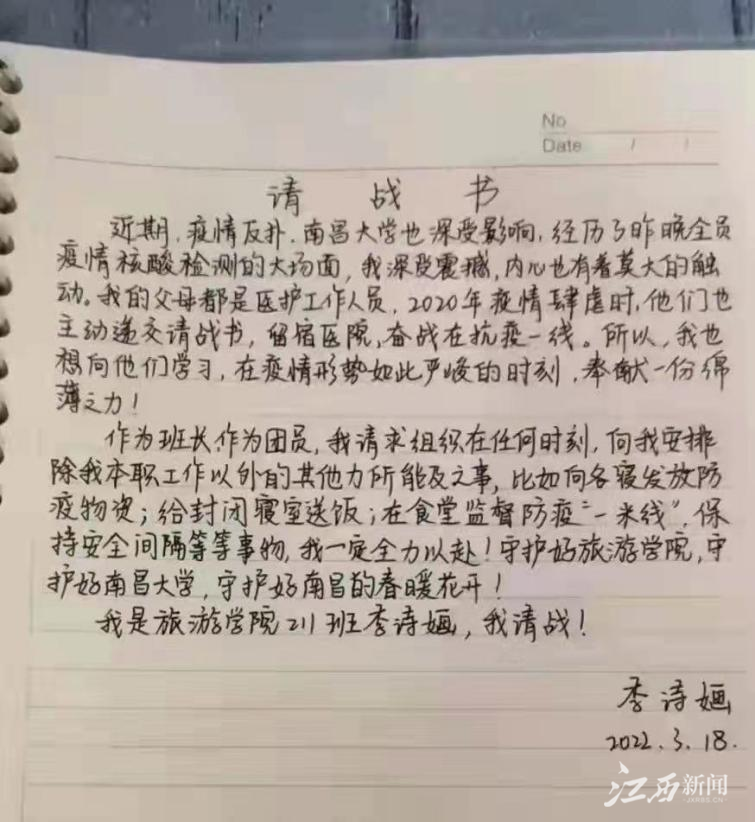 No
Date / /
请战书
近期,疫情反扑,南昌大学也深受影响,经历了昨晚全员
疫情核酸检测的大场面,我深受震撼,内心也有着莫大的触
动。我的父母都是医护工作人员,2020年疫情肆虐时,他们也
主动递交请战书,留宿医院,奋战在抗疫一线。所以,我也
想向他们学习,在疫情形势如此严峻的时刻,奉献一份绵
薄之力!
作为班长,作为团员,我请求组织在任何时刻,向我安排
除我本职工作以外的其他力所能及之事,比如向各寝发放防
疫物资;给封闭寝室送饭;在食堂监督防疫“一米线”,保
持安全间隔等等事物,我一定全力以赴!守护好旅游学院,守
护好南昌大学,守护好南昌的春暖花开!
我是旅游学院211班李诗婳,我请战!
李诗婳
2022.3.18.
江西新闻
JXNEWS.CN